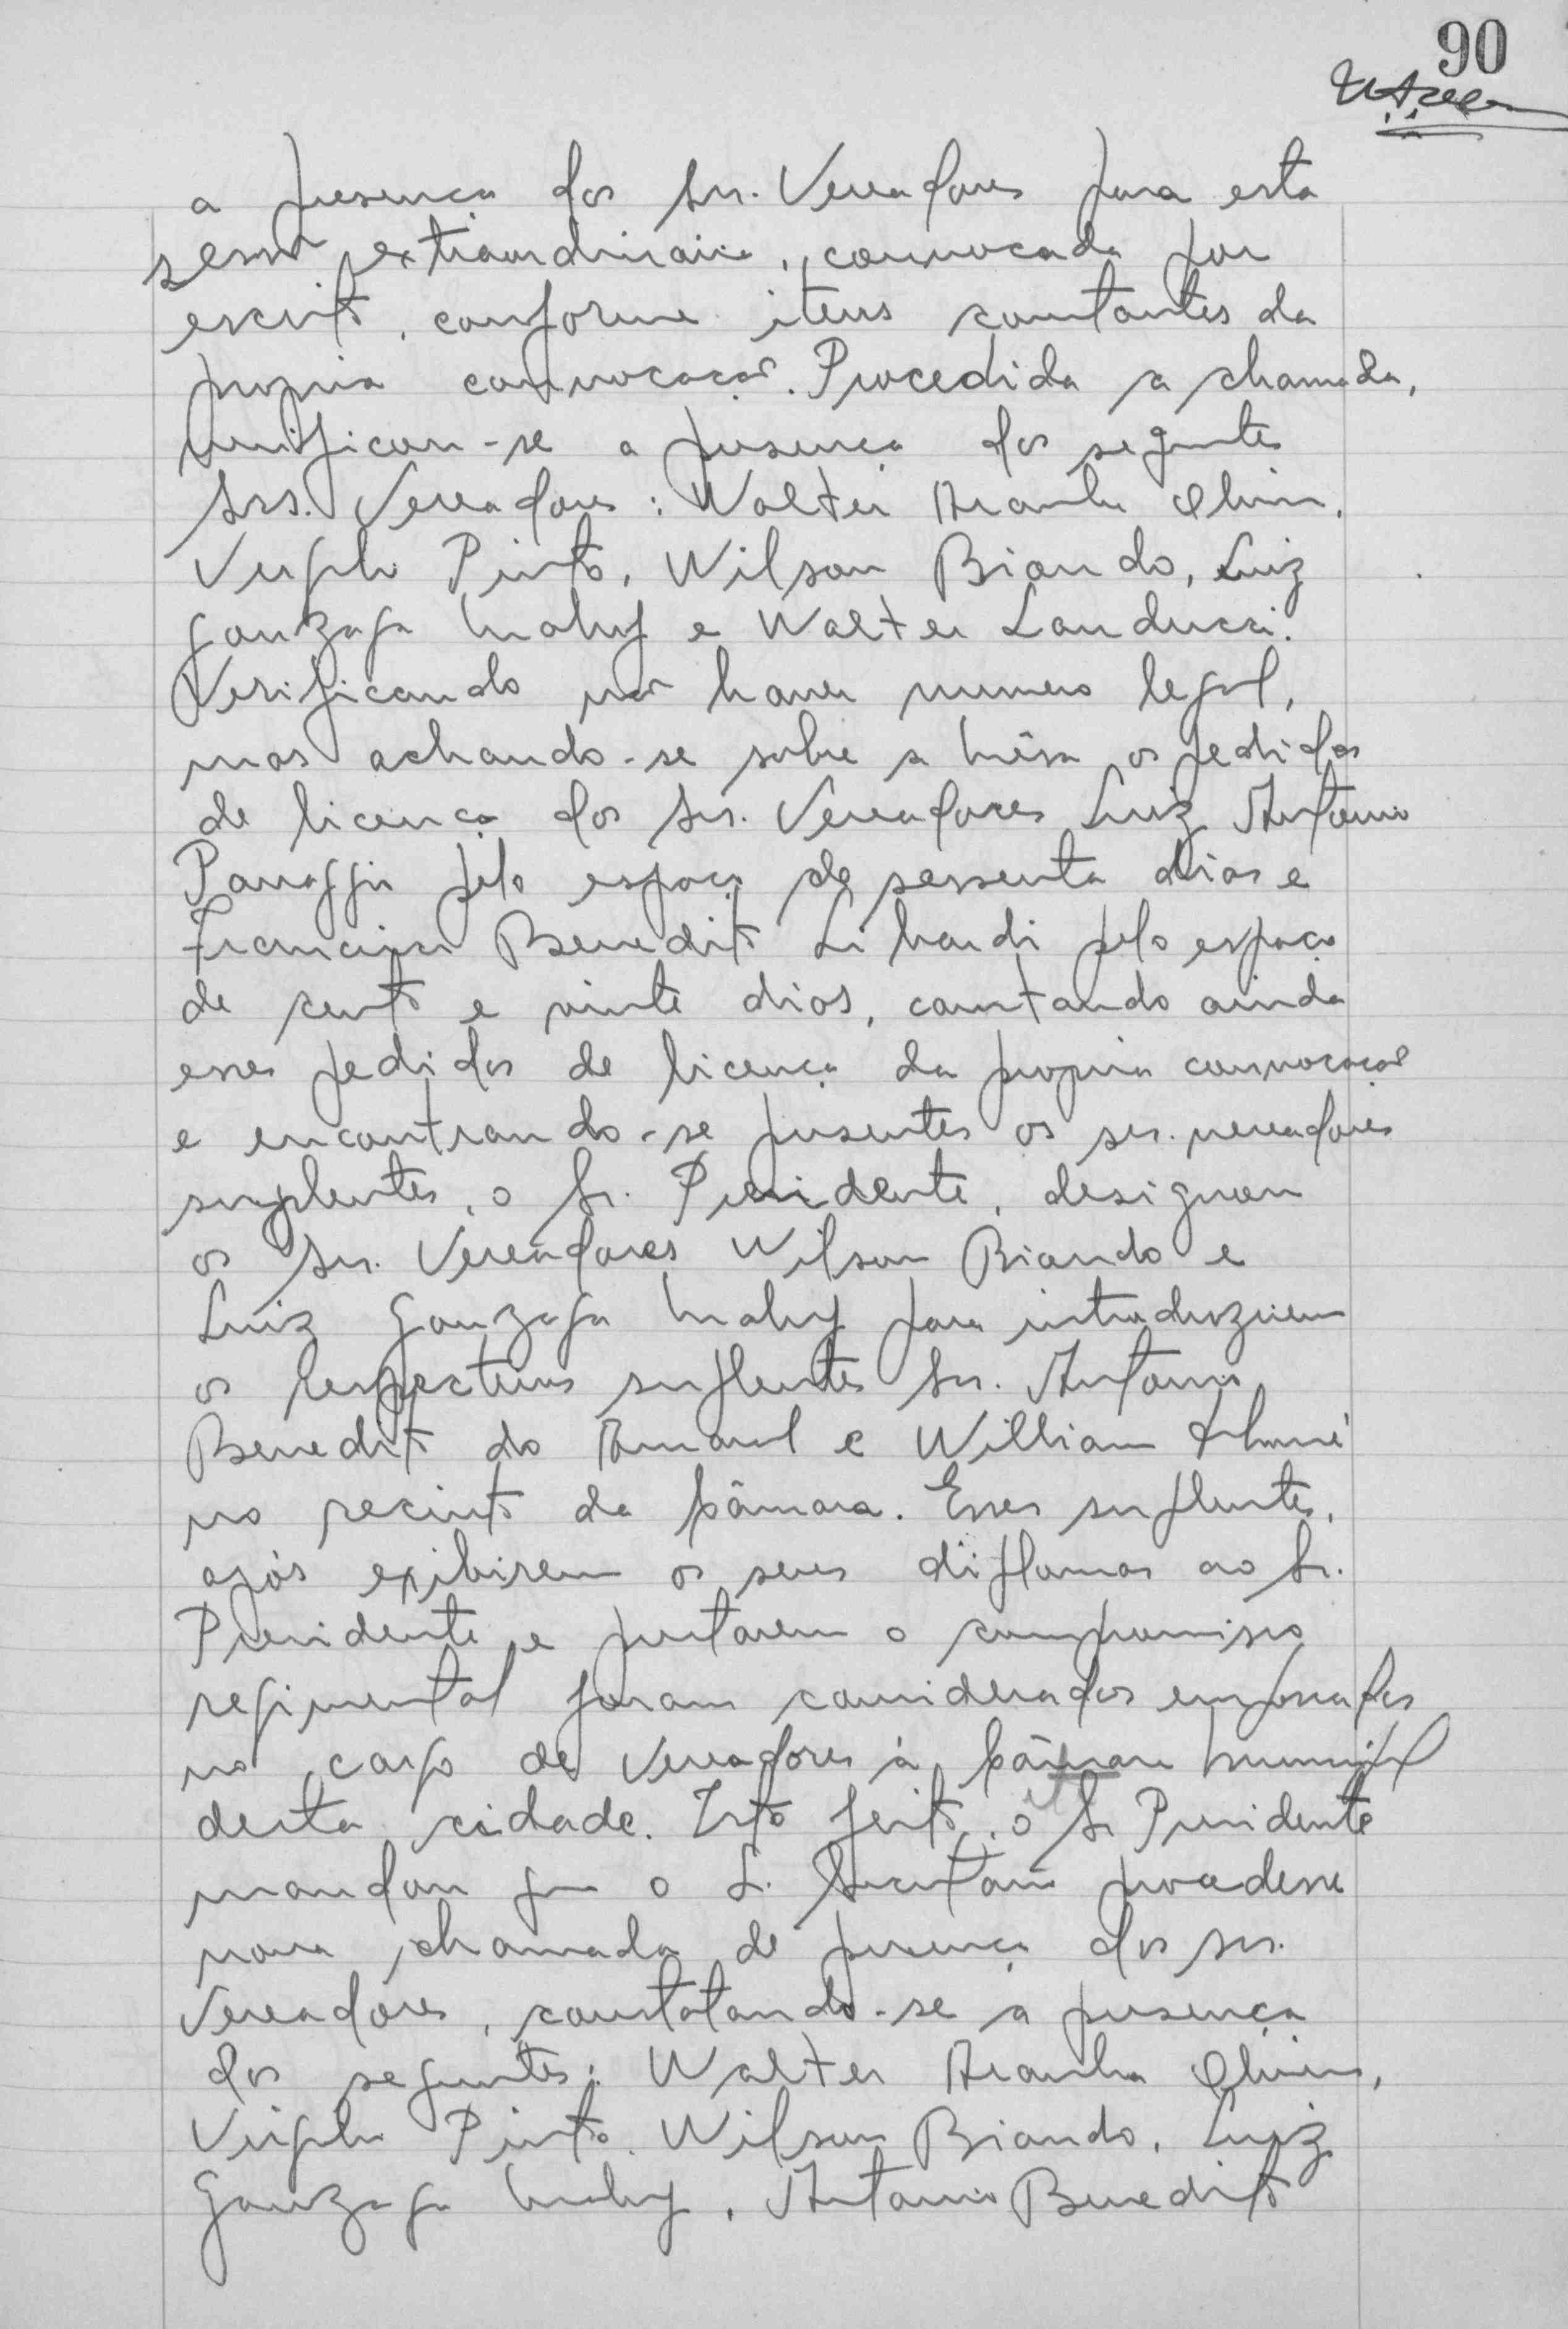 90
a presença dos Srs. Vereadores para esta
sessão extraordinaria, convocada por
escrito, conforme itens constantes da
propria convocação. Procedida a chamada,
verificou-se a presença dos seguintes
Srs. Vereadores: Walter Aranha
Virgilio Pinto, Wilson Biondo, Luiz
Gonzaga e Walter Landucci.
Verificando não haver numero legal,
mas achando-se sobre a mêsa os pedidos
de licença dos Srs. Vereadores Luiz Antonio
pelo espaço de sessenta dias e
Francisco Benedito Libardi pelo espaço
de cento e vinte dias, constando ainda
esses pedidos de licença da propria convocação
e encontrando-se presentes os srs. vereadores
suplentes, o Sr. Presidente, designou
os Srs. Vereadores Wilson Biondo e
Luiz Gonzaga para introduzirem
os respectivos suplentes Srs. Antonio
Benedito do Amaral e William
no recinto da Câmara. Esses suplentes,
após exibirem os seus diplomas ao Sr.
Presidente e prestarem o compromisso
regimental foram considerados empossados
no cargo de Vereadores à Câmara Municipal
desta cidade. Isto feito, o Sr Presidente
mandou que o S. Secretario procedesse
nova chamada de presença dos srs.
Vereadores, constatando-se a presença
dos seguintes: Walter Aranha
Virgilio Pinto, Wilson Biondo, Luiz
Gonzaga , Antonio Benedito